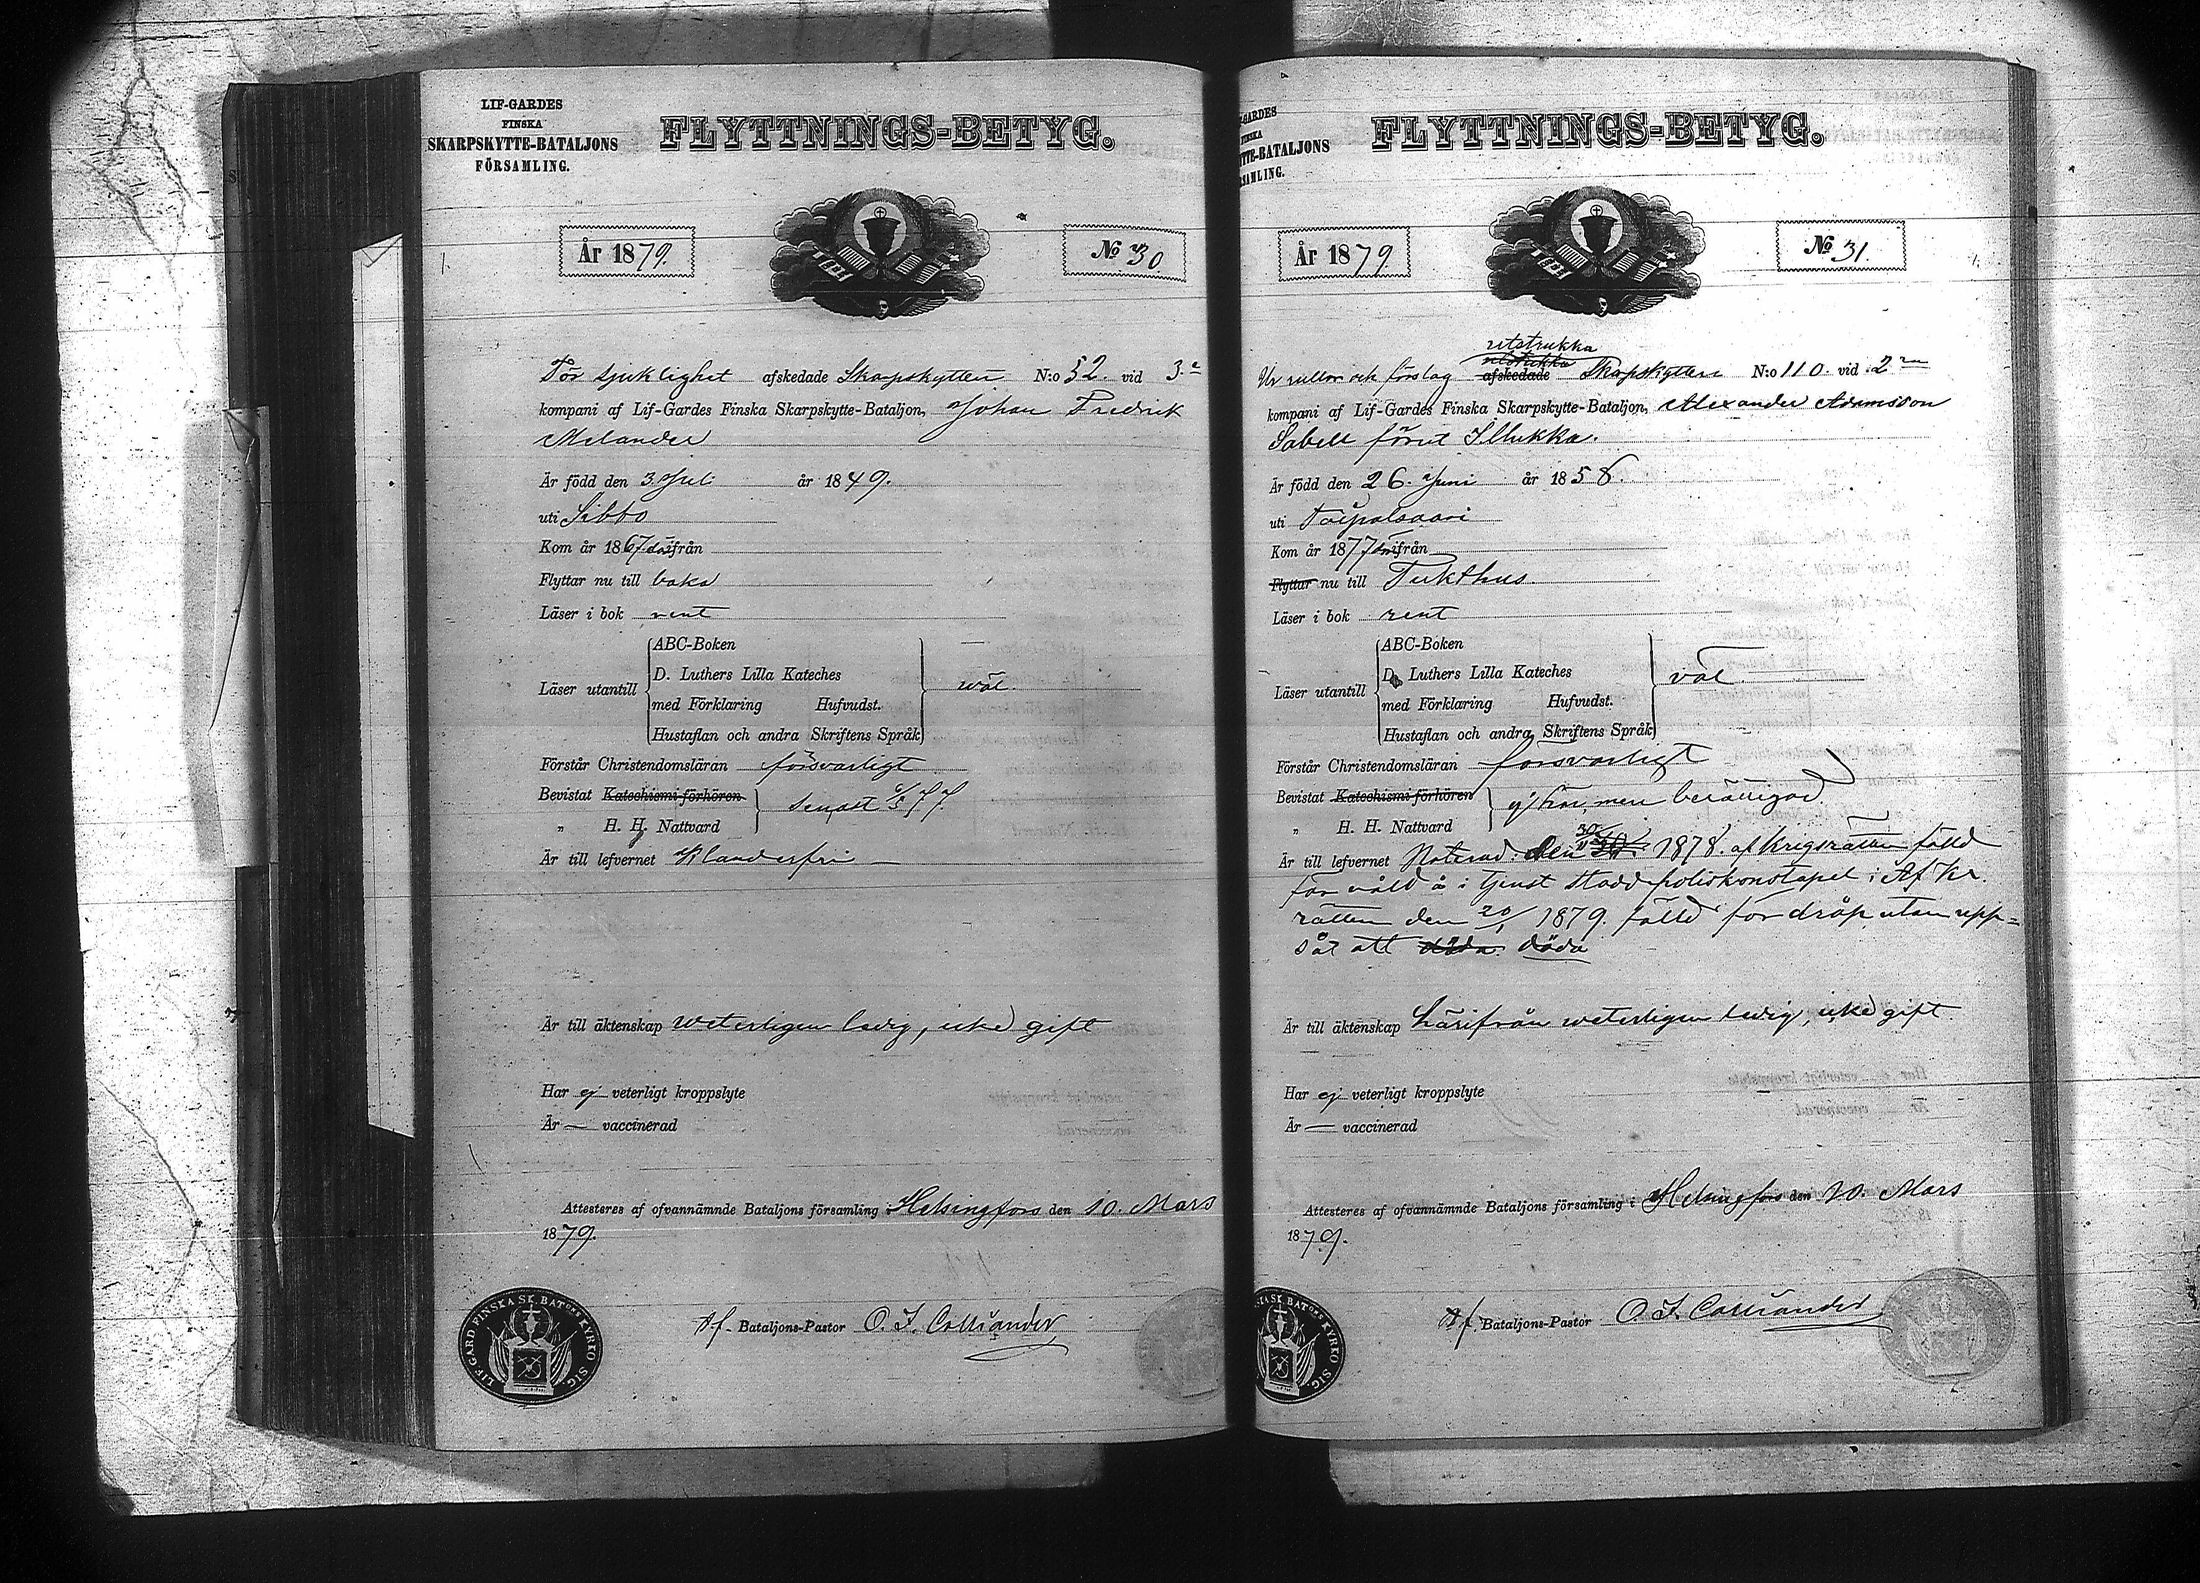 LIF-GARDES
FINSKA
SKARPSKYTTE-BATALJONS
FÖRSAMLING.
FLYTTNINGS-BETYG.
År 1879.
No 30
För sjuklighet afskedade Skarpskytten N:o 52. vid 3:e
kompani af Lif-Gardes Finska Skarpskytte-Bataljon, Johan Fredrik
Melander
Är född den 3 Juli år 1849.
uti Sibbo
Kom år 1867 därifrån
Flyttar nu till baka
Läser i bok rent
Läser utantill
ABC-Boken
D. Luthers Lilla Kateches
med Förklaring Hufvudst.
Hustaflan och andra Skriftens Språk
wäl.
Förstår Christendomsläran försvarligt
Bevistat Katechismi förhören
„ H. H. Nattvard
senast 77.
Är till lefvernet Klanderfri —
Är till äktenskap weterligen ledig, icke gift
Har ej veterligt kroppslyte
Är — vaccinerad
Attesteres af ofvannämnde Bataljons församling i Helsingfors den 10. Mars
1879.
Bataljons-Pastor O. F. Colliander
LIF-GARD FINSKA SK. BAT:ONS KYRKO SIG.
-GARDES
FINSKA
TTE-BATALJONS
RSAMLING.
FLYTTNINGS-BETYG.
År 1879
No 31.
utstrukka
Ur rullor och förslag afskedade Skarpskytten N:o 110. vid 2:ra
kompani af Lif-Gardes Finska Skarpskytte-Bataljon, Alexander Adamsson
Sabell förut Illukka.
Är född den 26. Juni år 1858.
uti Taipalsaari
Kom år 1877 därifrån
Flyttar nu till Tukthus.
Läser i bok rent
Läser utantill
ABC-Boken
D. Luthers Lilla Kateches
med Förklaring Hufvudst.
Hustaflan och andra Skriftens Språk
väl.
Förstår Christendomsläran försvarligt
Bevistat Katechismi förhören
„ H. H. Nattvard
ej här, men berättigad.
Är till lefvernet Noterad: den 1878. af Krigsrätten fälld
för våld å i tjenst stadd poliskonstapel; Af Kr.
rätten den 20/1 1879. fälld för dråp utan upp=
såt att döda. döda
Är till äktenskap härifrån weterligen ledig, icke gift
Har ej veterligt kroppslyte
Är — vaccinerad
Attesteres af ofvannämnde Bataljons församling i Helsingfors den 20. Mars
1879.
Bataljons-Pastor O. F. Colliander
SKA SK. BAT:ONS KYRKO SIG.